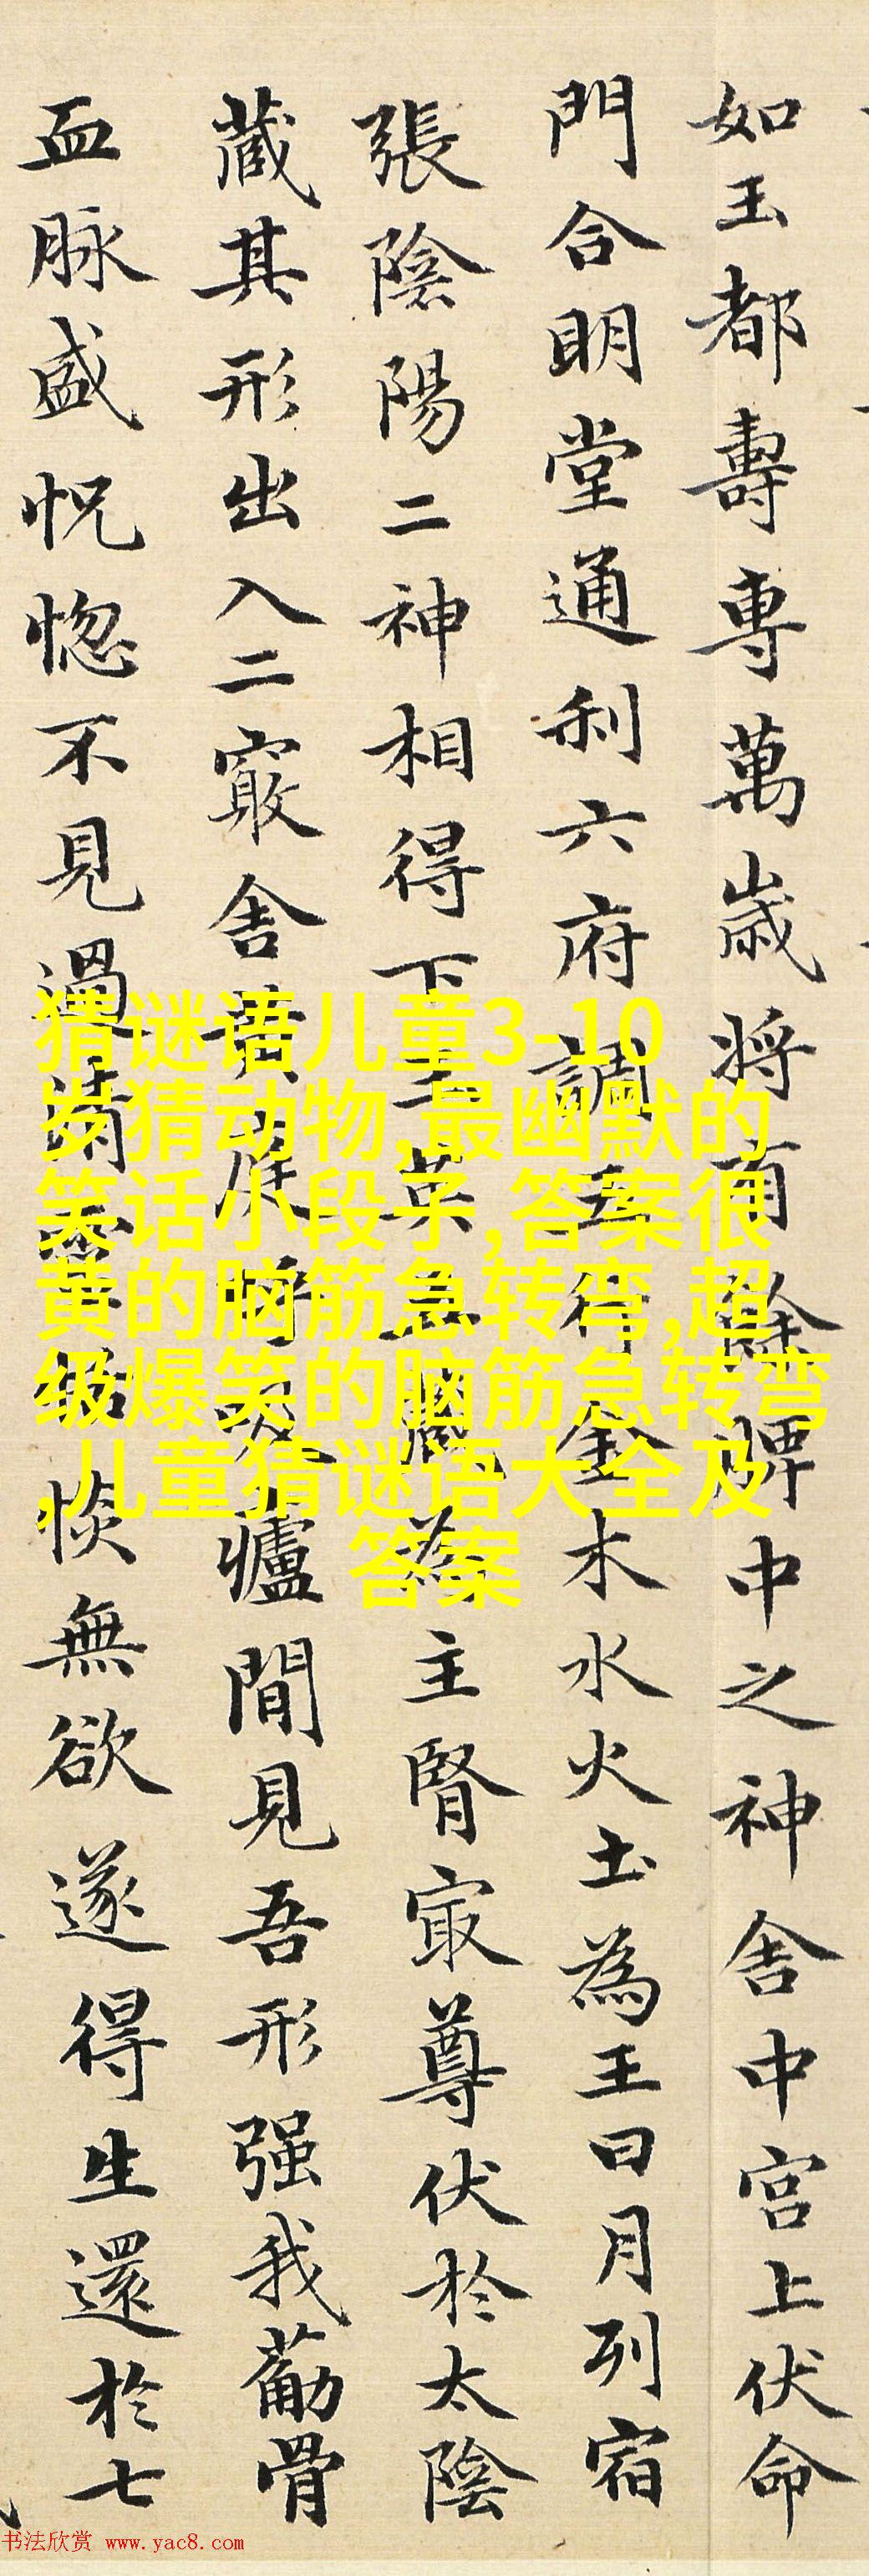 如玉都壽專萬歲將有餘脾中之神舍中宮上伏命
門合明堂通利六府調五行金木水火土為王日月列宿
張陰陽二神相得下玉英五藏為主腎㝡尊伏於太陰
藏其形出入二竅舍黃庭呼吸廬間見吾形强我骨
血脉盛怳惚不見過清靈恬惔無欲遂得生還於七
猜谜语儿童3-10
岁猜动物,最幽默的
笑话小段子,答案很
黄的脑筋急转弯,超
级爆笑的脑筋急转弯
,儿童猜谜语大全及
答案
书法欣赏 www.yac8.com